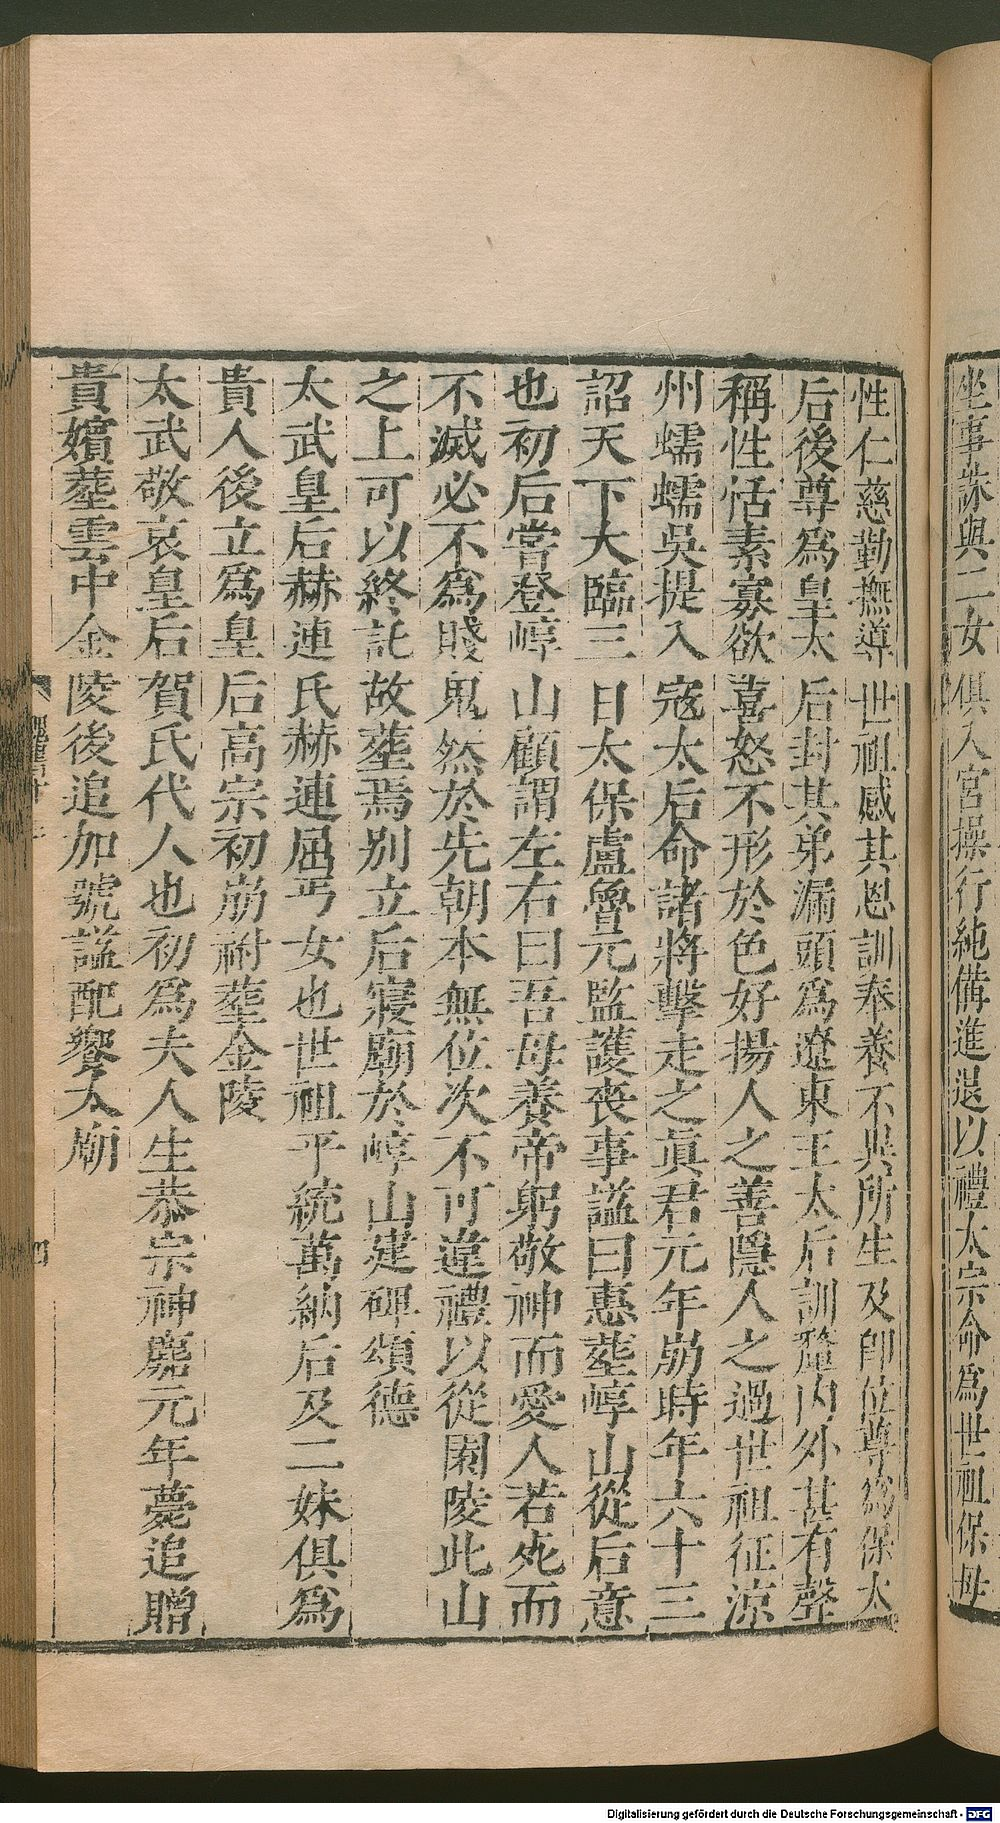 坐事誅與二女俱入宮操行純備進退以禮太宗命爲世祖保母
性仁慈勤撫導世祖感其恩訓奉養不異所生及卽位尊爲保太
后後尊爲皇太后封其弟漏頭爲遼東王太后訓釐內外甚有聲
稱性恬素寡欲喜怒不形於色好揚人之善隱人之過世祖征涼
州蠕蠕吳提入寇太后命諸將擊走之眞君元年崩時年六十三
詔天下大臨三日太保盧魯元監護喪事謚曰惠塟崞山從后意
也初后嘗登崞山顧謂左右曰吾母養帝躬敬神而愛人若死而
不滅必不爲賤鬼然於先朝本無位次不可違禮以從園陵此山
之上可以終託故塟焉別立后寢廟於崞山建碑頌德
太武皇后赫連氏赫連屈丐女也世祖平統萬納后及二妹俱爲
貴人後立爲皇后高宗初崩祔塟金陵
太武敬哀皇后賀氏代人也初爲夫人生恭宗神䴥元年薨追贈
貴嬪塟雲中金陵後追加號謚配饗太廟
四
Digitalisierung gefördert durch die Deutsche Forschungsgemeinschaft - DFG